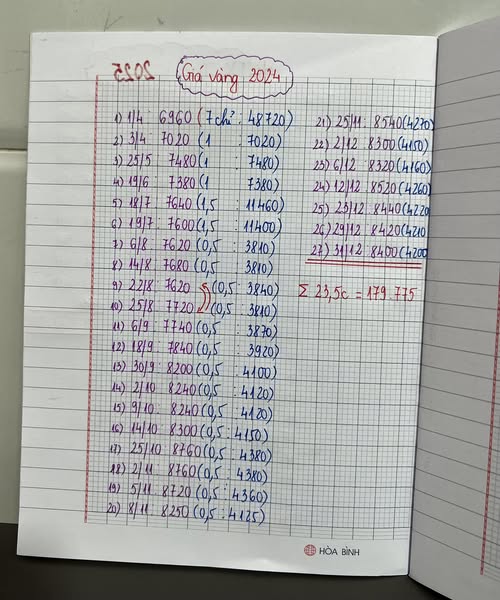 2025
Giá vàng 2024
1) 1/4 : 6960 (7 chỉ : 48720)
2) 3/4 : 7020 (1 : 7020)
3) 25/5 : 7480 (1 : 7480)
4) 19/6 : 7380 (1 : 7380)
5) 18/7 7640 (1,5 : 11460)
6) 19/7 : 7600 (1,5 : 11400)
7) 6/8 : 7620 (0,5 : 3810)
8) 14/8 : 7680 (0,5 : 3810)
9) 22/8 : 7620 (0,5 : 3840)
10) 25/8 : 7720 (0,5 : 3810)
11) 6/9 : 7740 (0,5 : 3870)
12) 18/9 : 7840 (0,5 : 3920)
13) 30/9 : 8200 (0,5 : 4100)
14) 2/10 : 8240 (0,5 : 4120)
15) 9/10 : 8240 (0,5 : 4120)
16) 14/10 : 8300 (0,5 : 4150)
17) 25/10 : 8760 (0,5 : 4380)
18) 2/11 : 8760 (0,5 : 4380)
19) 5/11 : 8720 (0,5 : 4360)
20) 8/11 : 8250 (0,5 : 4125)
21) 25/11 : 8540 (4270)
22) 2/12 : 8300 (4150)
23) 6/12 : 8320 (4160)
24) 12/12 : 8520 (4260)
25) 23/12 : 8440 (4220
26) 29/12 : 8420 (4210
27) 31/12 : 8400 (4200
Σ 23,5c = 179.775
HÒA BÌNH